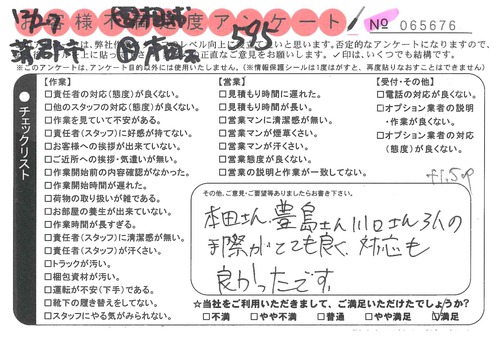 お客様不満足度アンケート No 065676
595
※このアンケートは、アンケート目的以外には使用いたしません。（※情報保護シールは1度はがすと、再度貼りなおすことはできません）
チェックリスト
【作業】
□責任者の対応（態度）が良くない。
□他のスタッフの対応（態度）が良くない。
□作業を見ていて不安がある。
□責任者（スタッフ）に好感が持てない。
□お客様への挨拶が出来ていない。
□ご近所への挨拶・気遣いが無い。
□作業開始前の内容確認がなかった。
□作業開始時間が遅れた。
□荷物の取り扱いが雑である。
□お部屋の養生が出来ていない。
□作業時間が長すぎる。
□責任者（スタッフ）に清潔感が無い。
□責任者（スタッフ）が汗くさい。
□トラックが汚い。
□梱包資材が汚い。
□運転が不安（下手）である。
□靴下の履き替えをしてない。
□スタッフにやる気がみられない。
【営業】
□見積もり時間に遅れた。
□見積もり時間が長い。
□営業マンに清潔感が無い。
□営業マンが煙草くさい。
□営業マンが汗くさい。
□営業態度が良くない。
□営業の説明と作業が一致してない。
【受付・その他】
□電話の対応が良くない。
□オプション業者の説明・作業が良くない。
□オプション業者の対応（態度）が良くない。
その他、ご意見・ご要望等ありましたらお書き下さい。
本田さん、豊島さん川口さん3人の
手際がとても良く、対応も
良かったです。
☆当社をご利用いただきまして、ご満足いただけたでしょうか？
□不満 □やや不満 □普通 □やや満足 ☑満足